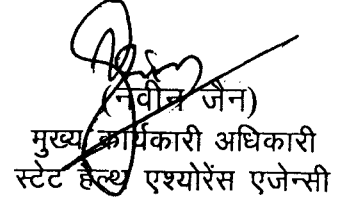 (नवीन जैन)
मुख्य कार्यकारी अधिकारी
स्टेट हैल्थ एश्योरेंस एजेन्सी